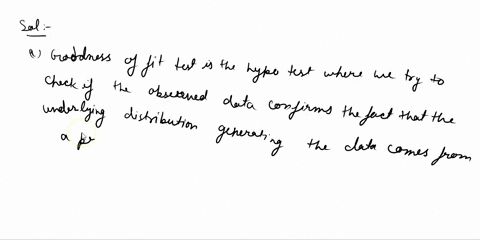 Sol:-
a) Goodness of fit test is the hypo test where we try to
check if the observed data confirms the fact that the
underlying distribution generating the data comes from
a pr